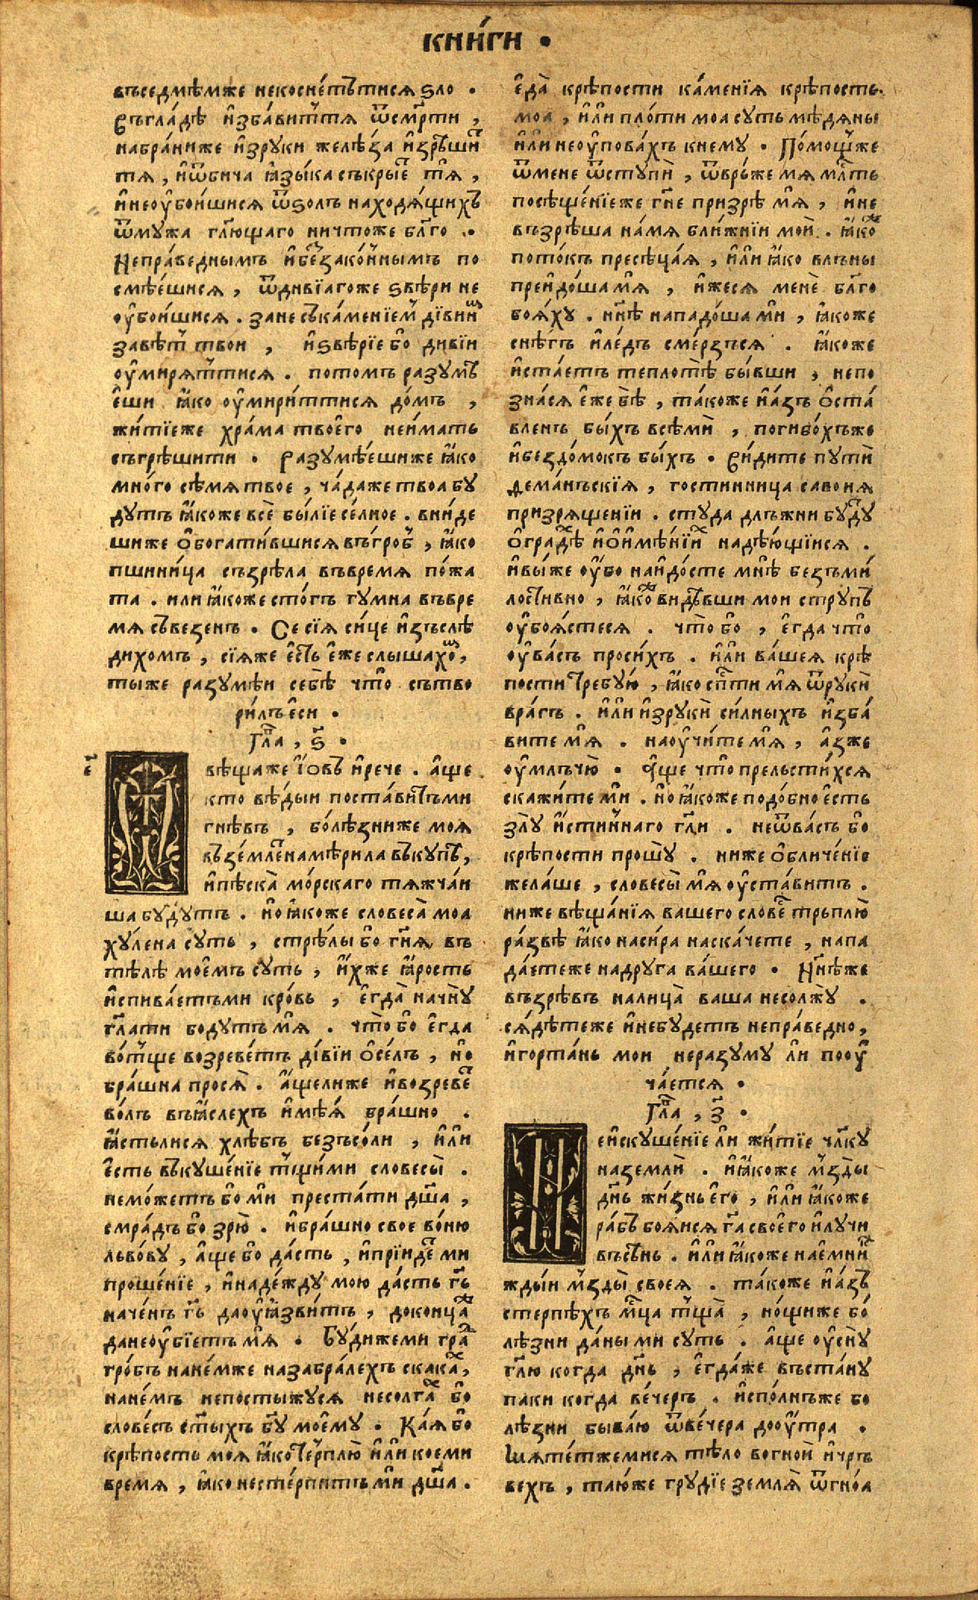 книги •
въседмѣмже некоснетътися ѕло •
въгладѣ избавитътя ѿсмр҃ти ,
набраниже изруки желѣза изрѣшит
тя , иѿбича ꙗзыка съкрыет тя ,
инеоубоишися ѿѕолъ находящихъ
ѿмужа гл҃ющаго ничтоже бл҃го •
Неправеднымъ ибеззаконнымъ по
смѣешися , ѿдивїагоже ѕвѣри не
оубоишися . зане съкаменїемъ дївиим
завѣт твои , иѕвѣрїе бо дивїи
оумирятътися . потомъ разумѣ
еши ꙗко оумириттися домъ ,
житїеже храма твоего неимать
съгрѣшити • Разумѣешиже ꙗко
много сѣмя твое , чадаже твоа бу
дутъ ꙗкоже все былїе селное . вниде
шиже обогатившися въгроб , ꙗко
пшиница съзрѣла въвремя пожа
та . или ꙗкоже стогъ гумна въвре
мя съвезенъ • Се сїя сице изъслѣ
дихомъ , сїяже есть еже слышахом ,
тыже разумѣи себѣ что сътво
рилъ еси •
Гл҃а , ѕ •
Ѿвѣщаже їовъ ирече . аще
кто вѣдыи поставитъми
гнѣвъ , болѣзниже моя
възємлѐ намѣрила въкупѣ ,
ипѣска морскаго тяжчаи
ша будутъ . но ꙗкоже словеса моа
хулена суть , стрѣлы бо гн҃я въ
тѣлѣ моемъ суть , ихже ꙗрость
испиваетъми кровь , егда начну
гл҃ати бодутъ мя . что бо егда
вотще возреветъ дївїи оселъ , но
брашна прося . ащелиже ивозреве
волъ въꙗслехъ имѣя брашно .
ꙗстьлися хлѣбъ безъсоли , или
есть въкушенїе тщими словесы .
неможетъ бо ми престати дш҃а ,
смрадъ бо зрю . ибрашно свое воню
львову , аще бо дасть , иприиде ми
прошенїе , инадежду мою дасть гь҃
наченъ гь҃ даоуꙗзвитъ , доконца
данеоубїетъ мя • Будижеми град
гробъ нанемже назабралехъ скаках ,
нанемъ непостыжуся несолгах бо
словесъ ст҃ыхъ бг҃у моему . Кая бо
крѣпость моя ꙗко терплю или коеми
время , ꙗко нестерпитъ ми дш҃а .
еда крѣпости каменїя крѣпость
моа , или плоти моа суть мѣдяны
или неоуповахъ кнему . Помощже
ѿмене ѿступи , ѿврьже мя мл҃ть
посѣщенїеже гн҃е призрѣ мя , ине
възрѣша намя ближнїи мои . ꙗкож
потокъ пресѣчая , или ꙗко влъны
преидоша мя , ижеся мене бл҃го
бояху . нн҃ѣ нападоша ми , ꙗкоже
снѣгъ иледъ смерзъся . ꙗкоже
истаетъ теплотѣ бывши , непо
знася еже бѣ , такоже иазъ оста
вленъ быхъ всѣми , погибохъже
ибездомокъ быхъ . видите пути
деманьскїя , гостинница савоня
призрящении . студа длъжни буду
оградѣ иоимѣнїи надѣющїися .
ивыже оубо наидосте мнѣ безъми
лостивно , ꙗкож видѣвши мои струпъ
оубоястеся . что бо , егда что
оувасъ просихъ . или вашея крѣ
пости требую , ꙗко сп҃сти мя ѿруки
врагъ . или изруки силныхъ изба
вите мя . наоучите мя , азже
оумлъчю . аще что прельстихся
скажите ми . но ꙗкоже подобно есть
злу истиннаго гл҃и . неѿвасъ бо
крѣпости прошу . ниже обличенїе
желаше , словесы мя оуставитъ .
ниже вѣщанїя вашего словес трьплю
развѣ ꙗко насира наскачете , напа
даетеже надруга вашего . Нн҃ѣже
възрѣвъ налица ваша несолжу .
сядѣтеже инебудетъ неправедно ,
игортань мои неразуму ли пооу
чается •
Гл҃а , з •
Неискушенїе ли житїе чл҃ку
наземли . иꙗкоже мьзды
дн҃ь жизнь его , или ꙗкоже
рабъ боянся га҃ своего илучи
въсѣнь . или ꙗкоже наемник
ждыи мьзды своея . такоже иазъ
стерпѣхъ мц҃а тща , нощиже бо
лѣзни даны ми суть . аще оусну
гл҃ю когда дн҃ь , егдаже въстану
паки когда вечеръ . исполнъже бо
лѣзни бываю ѿвечера дооутра .
Мятетжемися тѣло вогнои ичръ
вехъ , таюже грудїе земля ѿгноа